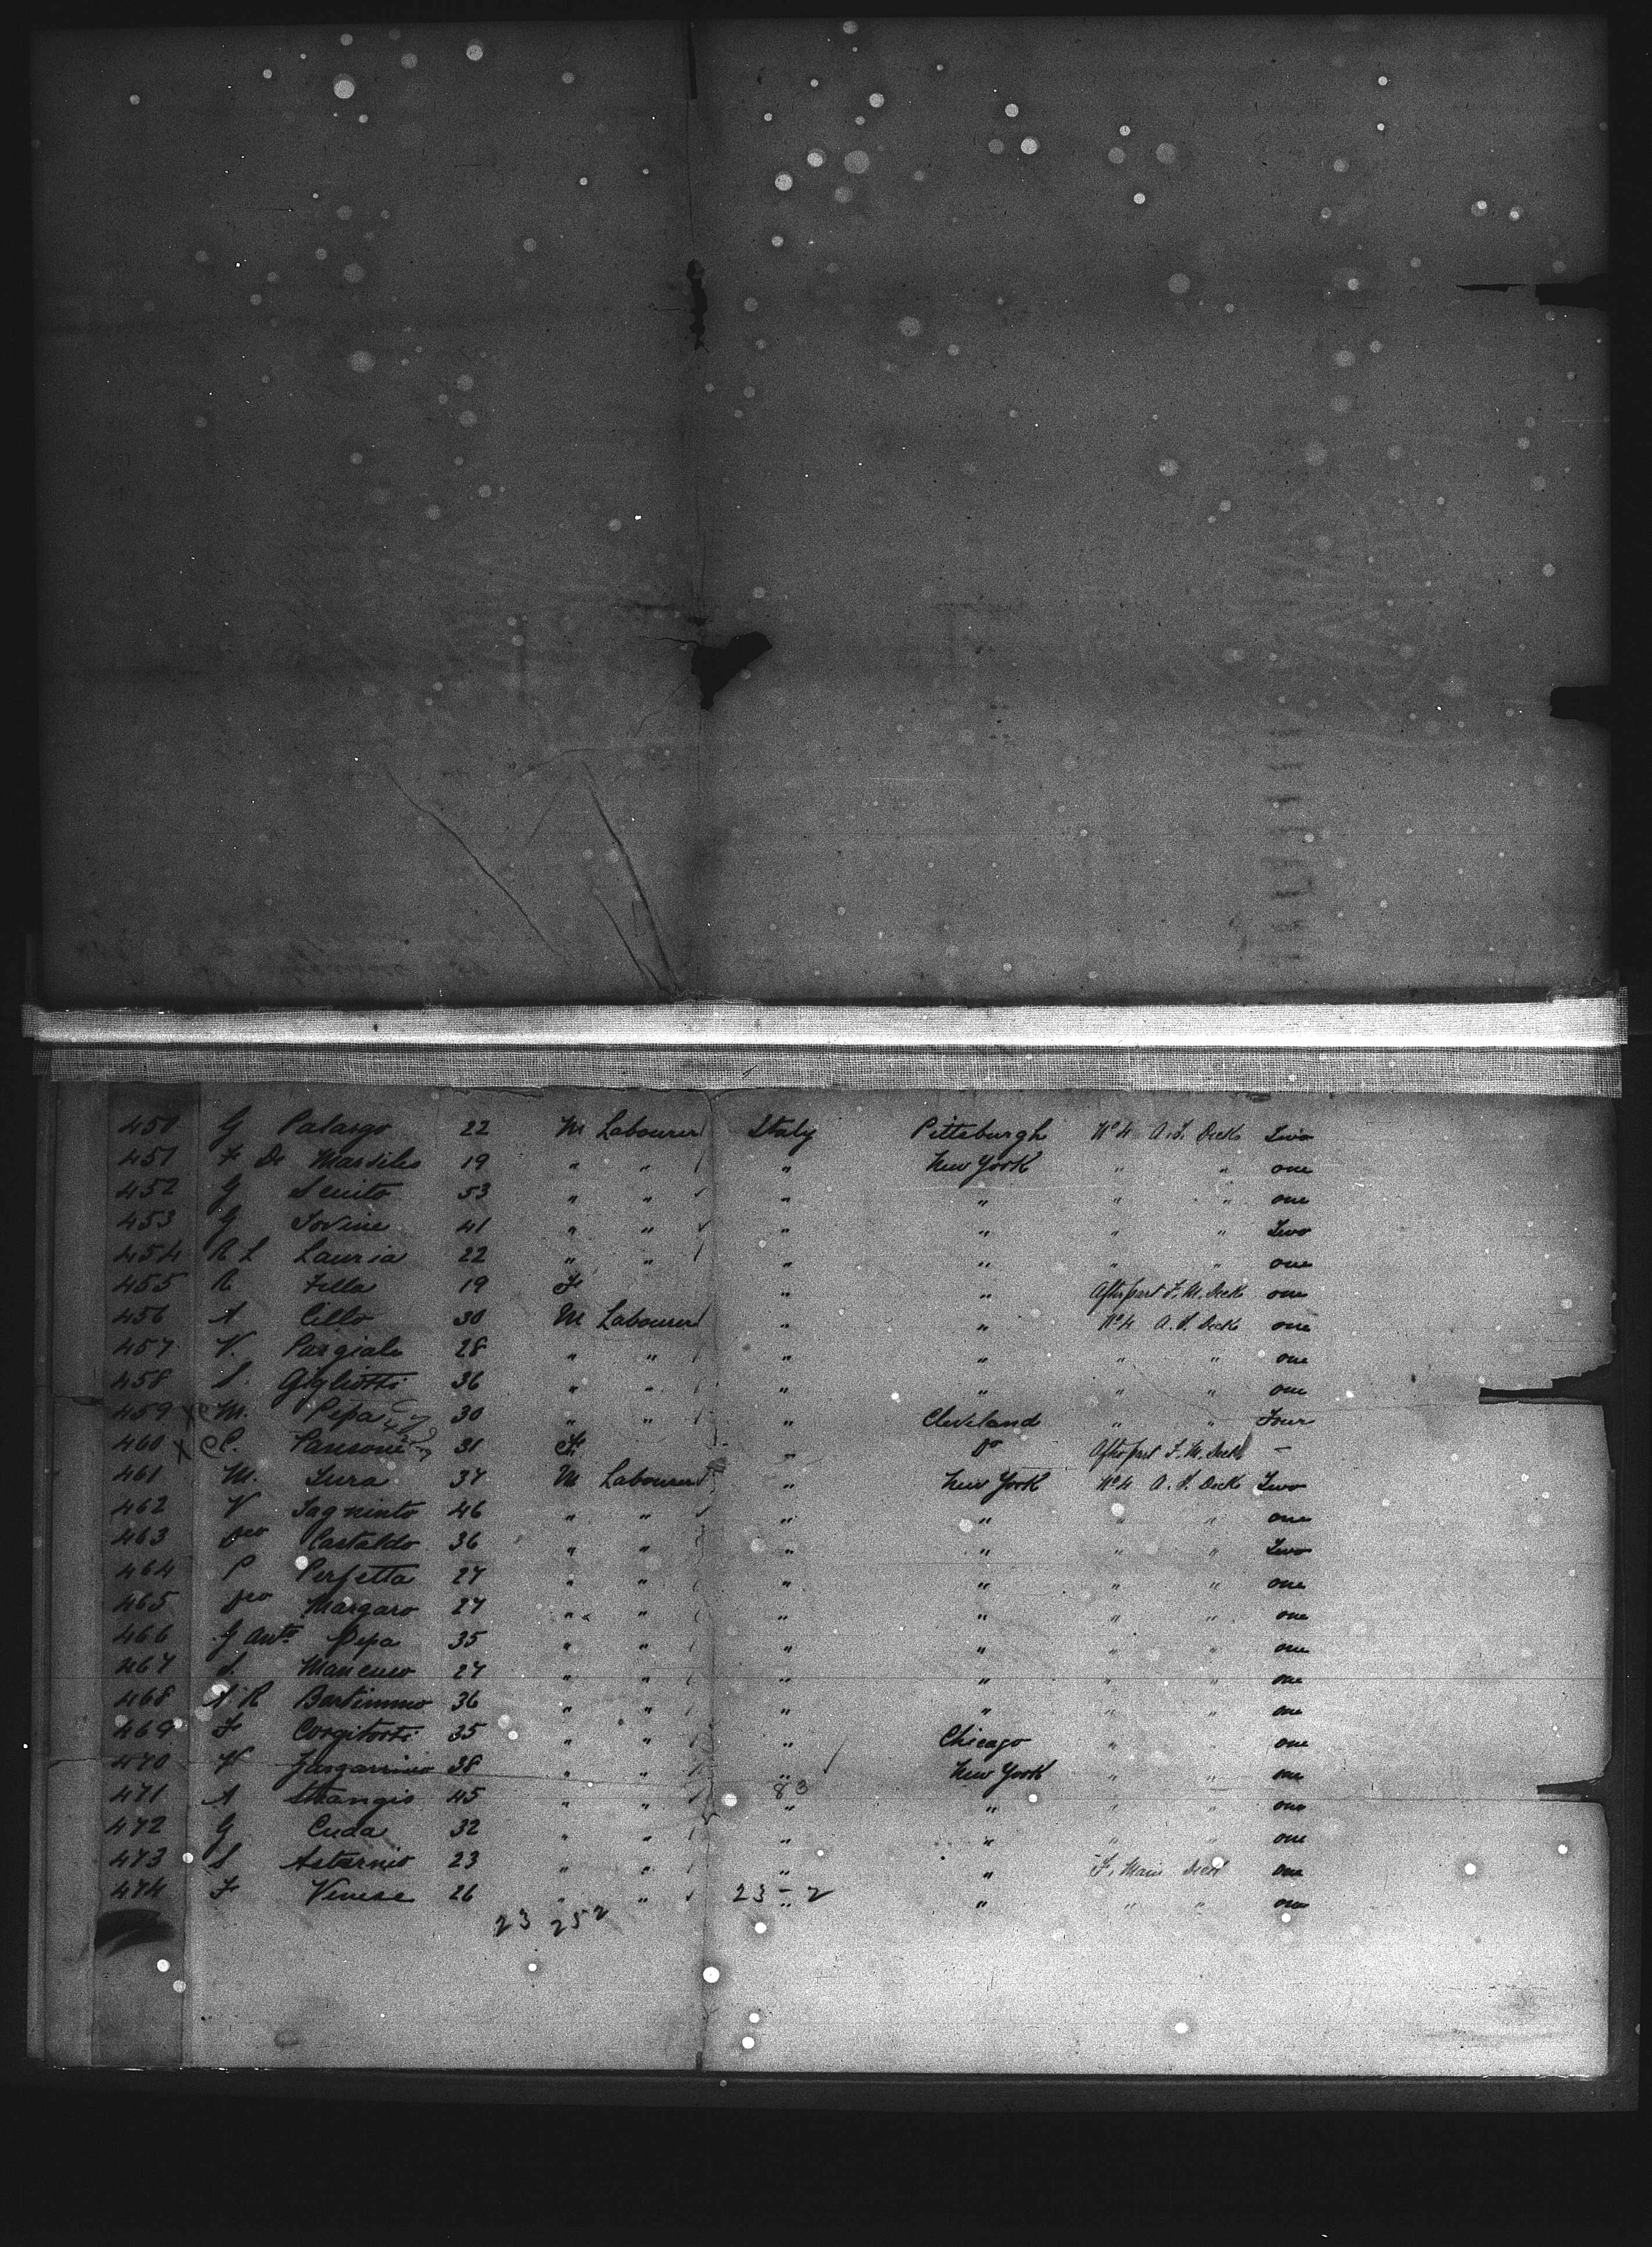 450 G Palargo 22 M Labourer Italy Pittsburgh No 4 A. S. Deck Two
451 F De Marsiles 19 " " " New York " " one
452 G Senito 53 " " " " " " one
453 G Iovine 41 " " " " " " Two
454 R L Lauria 22 " " " " " " one
455 R Filla 19 F " " After part F. M. Deck one
456 A Cillo 30 M Labourer " " No 4 A. S. Deck one
457 V. 28 " " " " " " one
458 S. Gigliotti 36 " " " " " " one
459 M. Pepa 30 " " " Cleveland " " Four
460 C. Pansone 31 F. " Do After part F. M. Deck —
461 M. Iura 37 M Labourer " New York No 4 A. S. Deck Two
462 V Tagninto 46 " " " " " " one
463 Castaldo 36 " " " " " " Two
464 P Perfetta 27 " " " " " " one
465 Margaro 27 " " " " " " one
466 G Anto Pepa 35 " " " " " " one
467 S. Mancuso 27 " " " " " " one
468 A R Bartimmo 36 " " " " " " one
469 F Corgitorti 35 " " " Chicago " " one
470 38 " " " New York " " one
471 A Strangio 45 " " 83 " " " " one
472 G Cuda 32 " " " " " " one
473 S Astarnio 23 " " " " F. Main Deck one
474 F Venese 26 " " 23 - 2 " " " " one
23 252